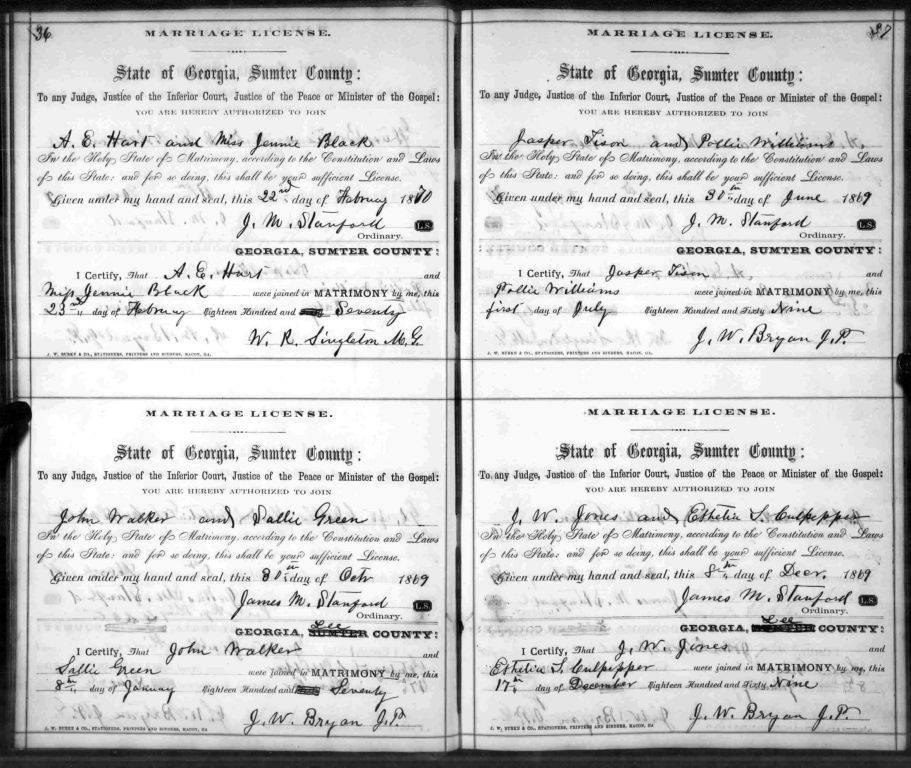 36
MARRIAGE LICENSE.
State of Georgia, Sumter County:
To any Judge, Justice of the Inferior Court, Justice of the Peace or Minister of the Gospel:
YOU ARE HEREBY AUTHORIZED TO JOIN
A. E. Hart and Miss Jennie Black
In the Holy State of Matrimony, according to the Constitution and Laws
of this State: and for so doing, this shall be your sufficient License.
Given under my hand and seal, this 22nd day of Febuary 1870
J. M. Stanford L.S.
Ordinary.
GEORGIA, SUMTER COUNTY:
I Certify, That A. E. Hart and
Miss Jennie Black were joined in MATRIMONY by me, this
23rd day of Febuary Eighteen Hundred and Seventy
W. R. Singleton M.G.
J. W. BURKE & CO., STATIONERS, PRINTERS AND BINDERS, MACON, GA.
MARRIAGE LICENSE.
State of Georgia, Sumter County:
To any Judge, Justice of the Inferior Court, Justice of the Peace or Minister of the Gospel:
YOU ARE HEREBY AUTHORIZED TO JOIN
John Walker and Sallie Green
In the Holy State of Matrimony, according to the Constitution and Laws
of this State: and for so doing, this shall be your sufficient License.
Given under my hand and seal, this 30th day of Octr 1869
James M. Stanford L.S.
Ordinary.
GEORGIA, SUMTER Lee COUNTY:
I Certify, That John Walker and
Sallie Green were joined in MATRIMONY by me, this
8th day of January Eighteen Hundred and Seventy
J. W. Bryan J.P.
J. W. BURKE & CO., STATIONERS, PRINTERS AND BINDERS, MACON, GA
37
MARRIAGE LICENSE.
State of Georgia, Sumter County:
To any Judge, Justice of the Inferior Court, Justice of the Peace or Minister of the Gospel:
YOU ARE HEREBY AUTHORIZED TO JOIN
Jasper Tison and Pollie Williams
In the Holy State of Matrimony, according to the Constitution and Laws
of this State: and for so doing, this shall be your sufficient License.
Given under my hand and seal, this 30th day of June 1869
J. M. Stanford L.S.
Ordinary.
GEORGIA, SUMTER COUNTY:
I Certify, That Jasper Tison and
Pollie Williams were joined in MATRIMONY by me, this
first day of July Eighteen Hundred and Sixty Nine
J. W. Bryan J.P.
J. W. BURKE & CO., STATIONERS, PRINTERS AND BINDERS, MACON, GA.
MARRIAGE LICENSE.
State of Georgia, Sumter County:
To any Judge, Justice of the Inferior Court, Justice of the Peace or Minister of the Gospel:
YOU ARE HEREBY AUTHORIZED TO JOIN
J. W. Jones and Esthetia S. Culpepper
In the Holy State of Matrimony, according to the Constitution and Laws
of this State: and for so doing, this shall be your sufficient License.
Given under my hand and seal, this 8th day of Decr. 1869
James M. Stanford L.S.
Ordinary.
GEORGIA, Lee COUNTY:
I Certify, That J. W. Jones and
Esthetia S. Culpepper were joined in MATRIMONY by me, this
17th day of December Eighteen Hundred and Sixty Nine
J. W. Bryan J.P.
J. W. BURKE & CO., STATIONERS, PRINTERS AND BINDERS, MACON, GA